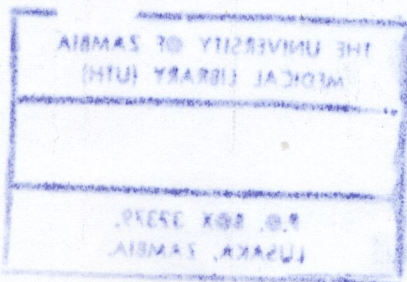 THE UNIVERSITY OF ZAMBIA
MEDICAL LIBRARY (UTH)
P.O. BOX 37379,
LUSAKA, ZAMBIA.